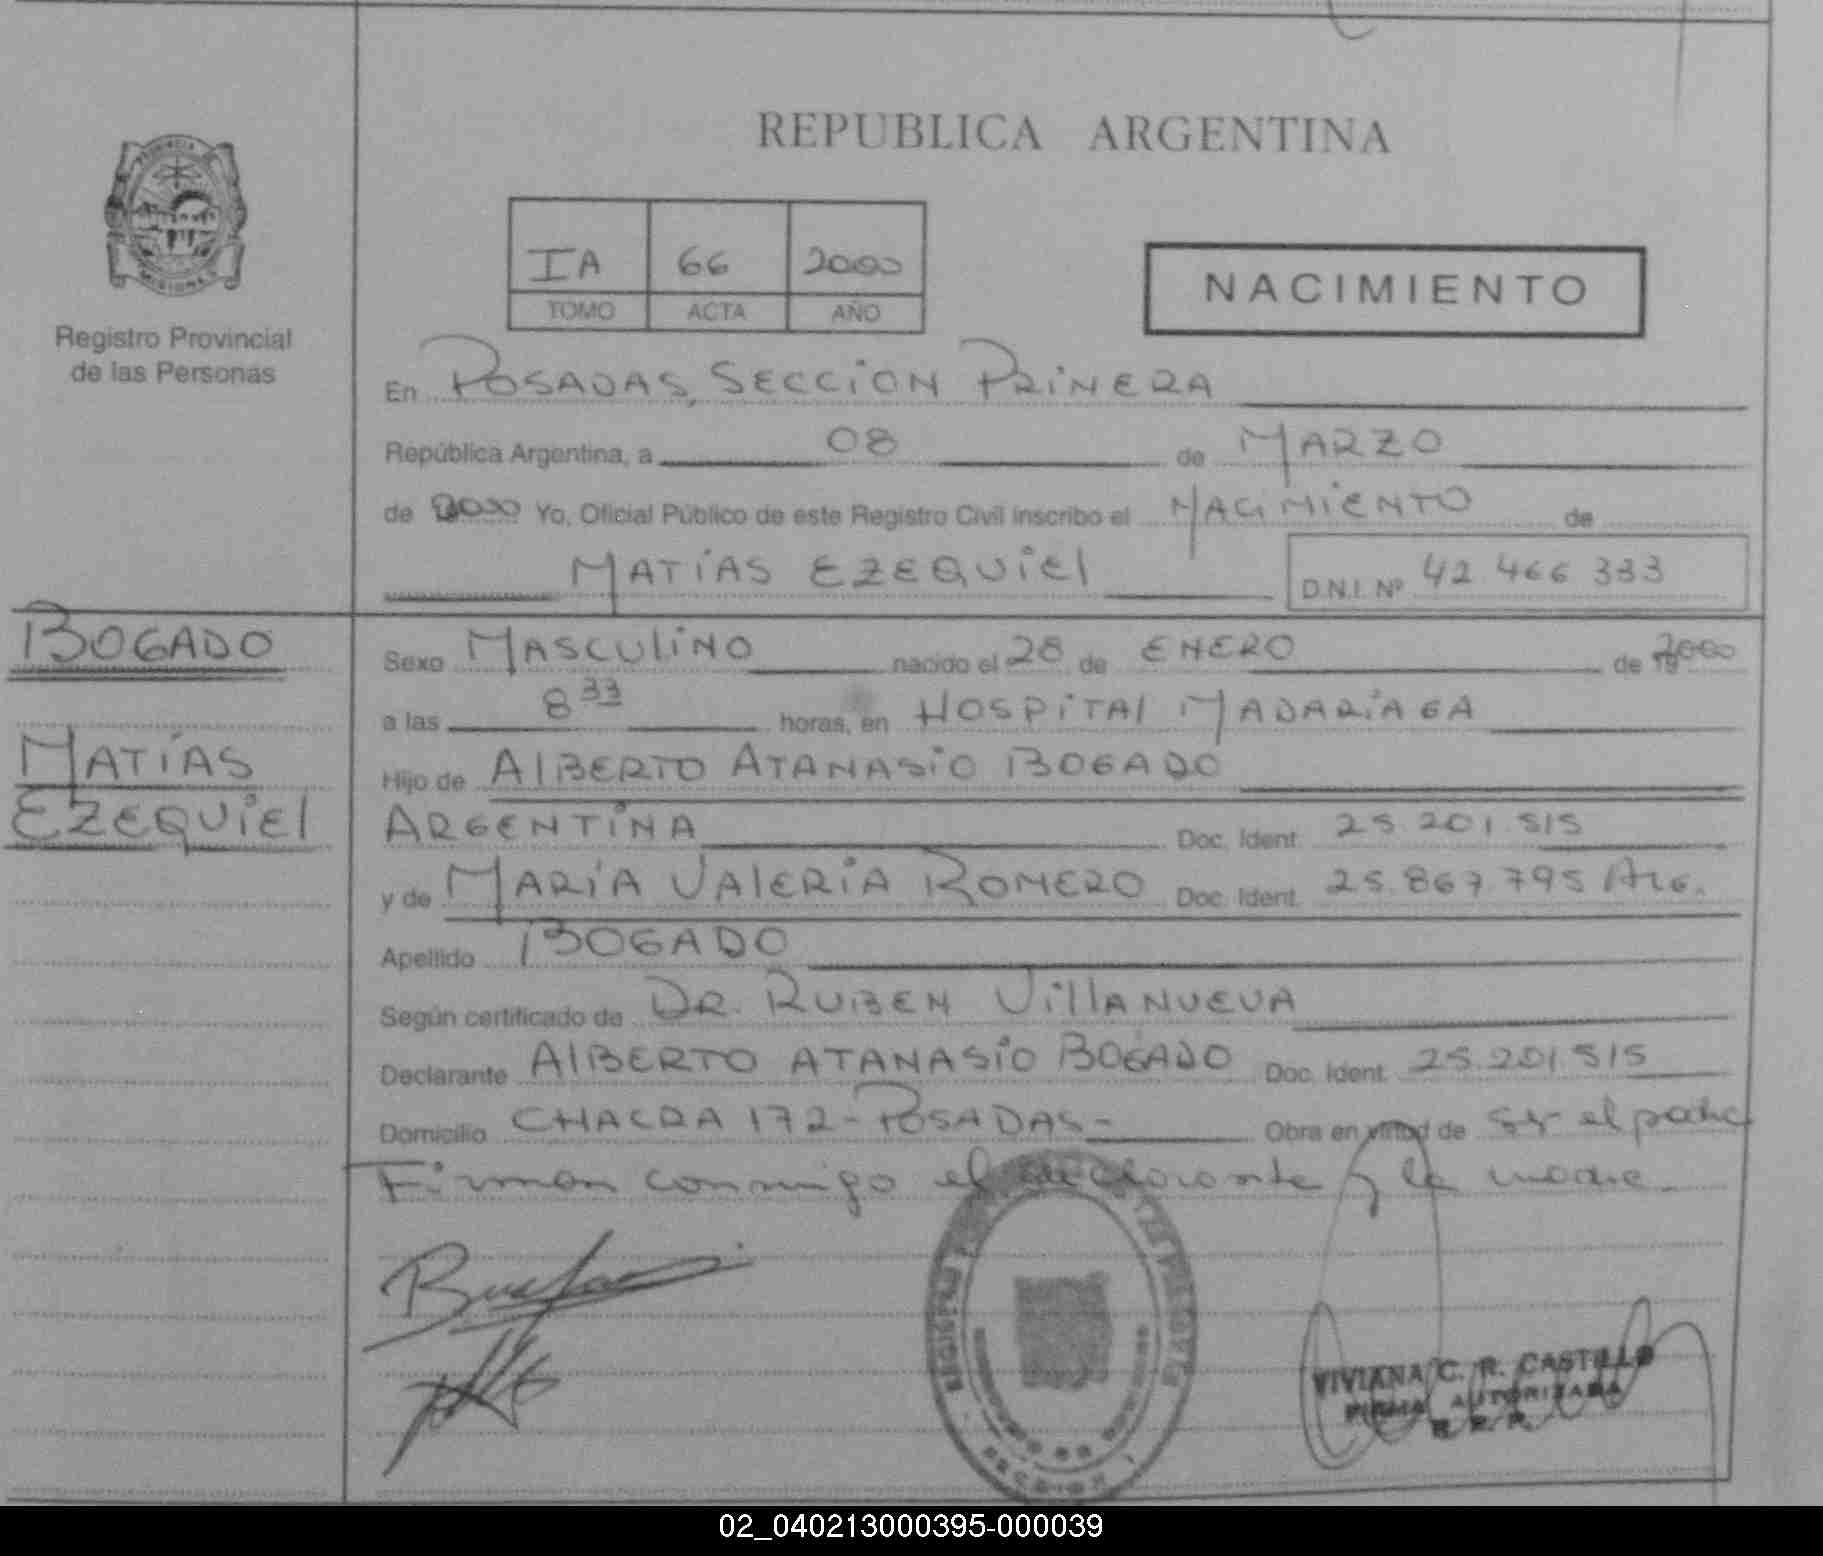 REPUBLICA ARGENTINA
PROVINCIA DE
MISIONES
Registro Provincial
de las Personas
IA 66 2000
TOMO ACTA AÑO
NACIMIENTO
En POSADAS, SECCION PRIMERA
República Argentina, a 08 de MARZO
de 2000 Yo, Oficial Público de este Registro Civil inscribo el NACIMIENTO de
MATÍAS EZEQUIEL D.N.I. Nº 42.466.333
BOGADO
MATÍAS
EZEQUIEL
Sexo MASCULINO nacido el 28 de ENERO de 2000
a las 8 33 horas, en HOSPITAL MADARIAGA
Hijo de ALBERTO ATANASIO BOGADO
ARGENTINA Doc. Ident. 25.201.515
y de MARÍA VALERIA ROMERO Doc. Ident. 25.867.795 Arg.
Apellido BOGADO
Según certificado de DR. RUBEN VILLANUEVA
Declarante ALBERTO ATANASIO BOGADO Doc. Ident. 25.201.515
Domicilio CHACRA 172-POSADAS- Obra en virtud de ser el padre
Firman conmigo el declarante y la madre.
SECCION 1
VIVIANA C. R. CASTILLO
FIRMA AUTORIZADA
R. P. P.
02_040213000395-000039